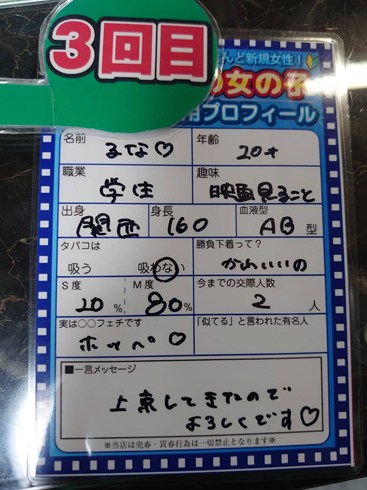 3回目
んど新規女性!
の女の子
用プロフィール
名前
るな♡
年齢
20才
職業
学生
趣味
映画見ること
出身
関西
身長
160
血液型
AB型
タバコは
吸う 吸わない
勝負下着って?
かわいいの
S度
20%,
M度
80%
今までの交際人数
2人
実は○○フェチです
ホッペ♡
「似てる」と言われた有名人
■一言メッセージ
上京してきたので
よろしくです♡
※当店は売春・買春行為は一切禁止となります※